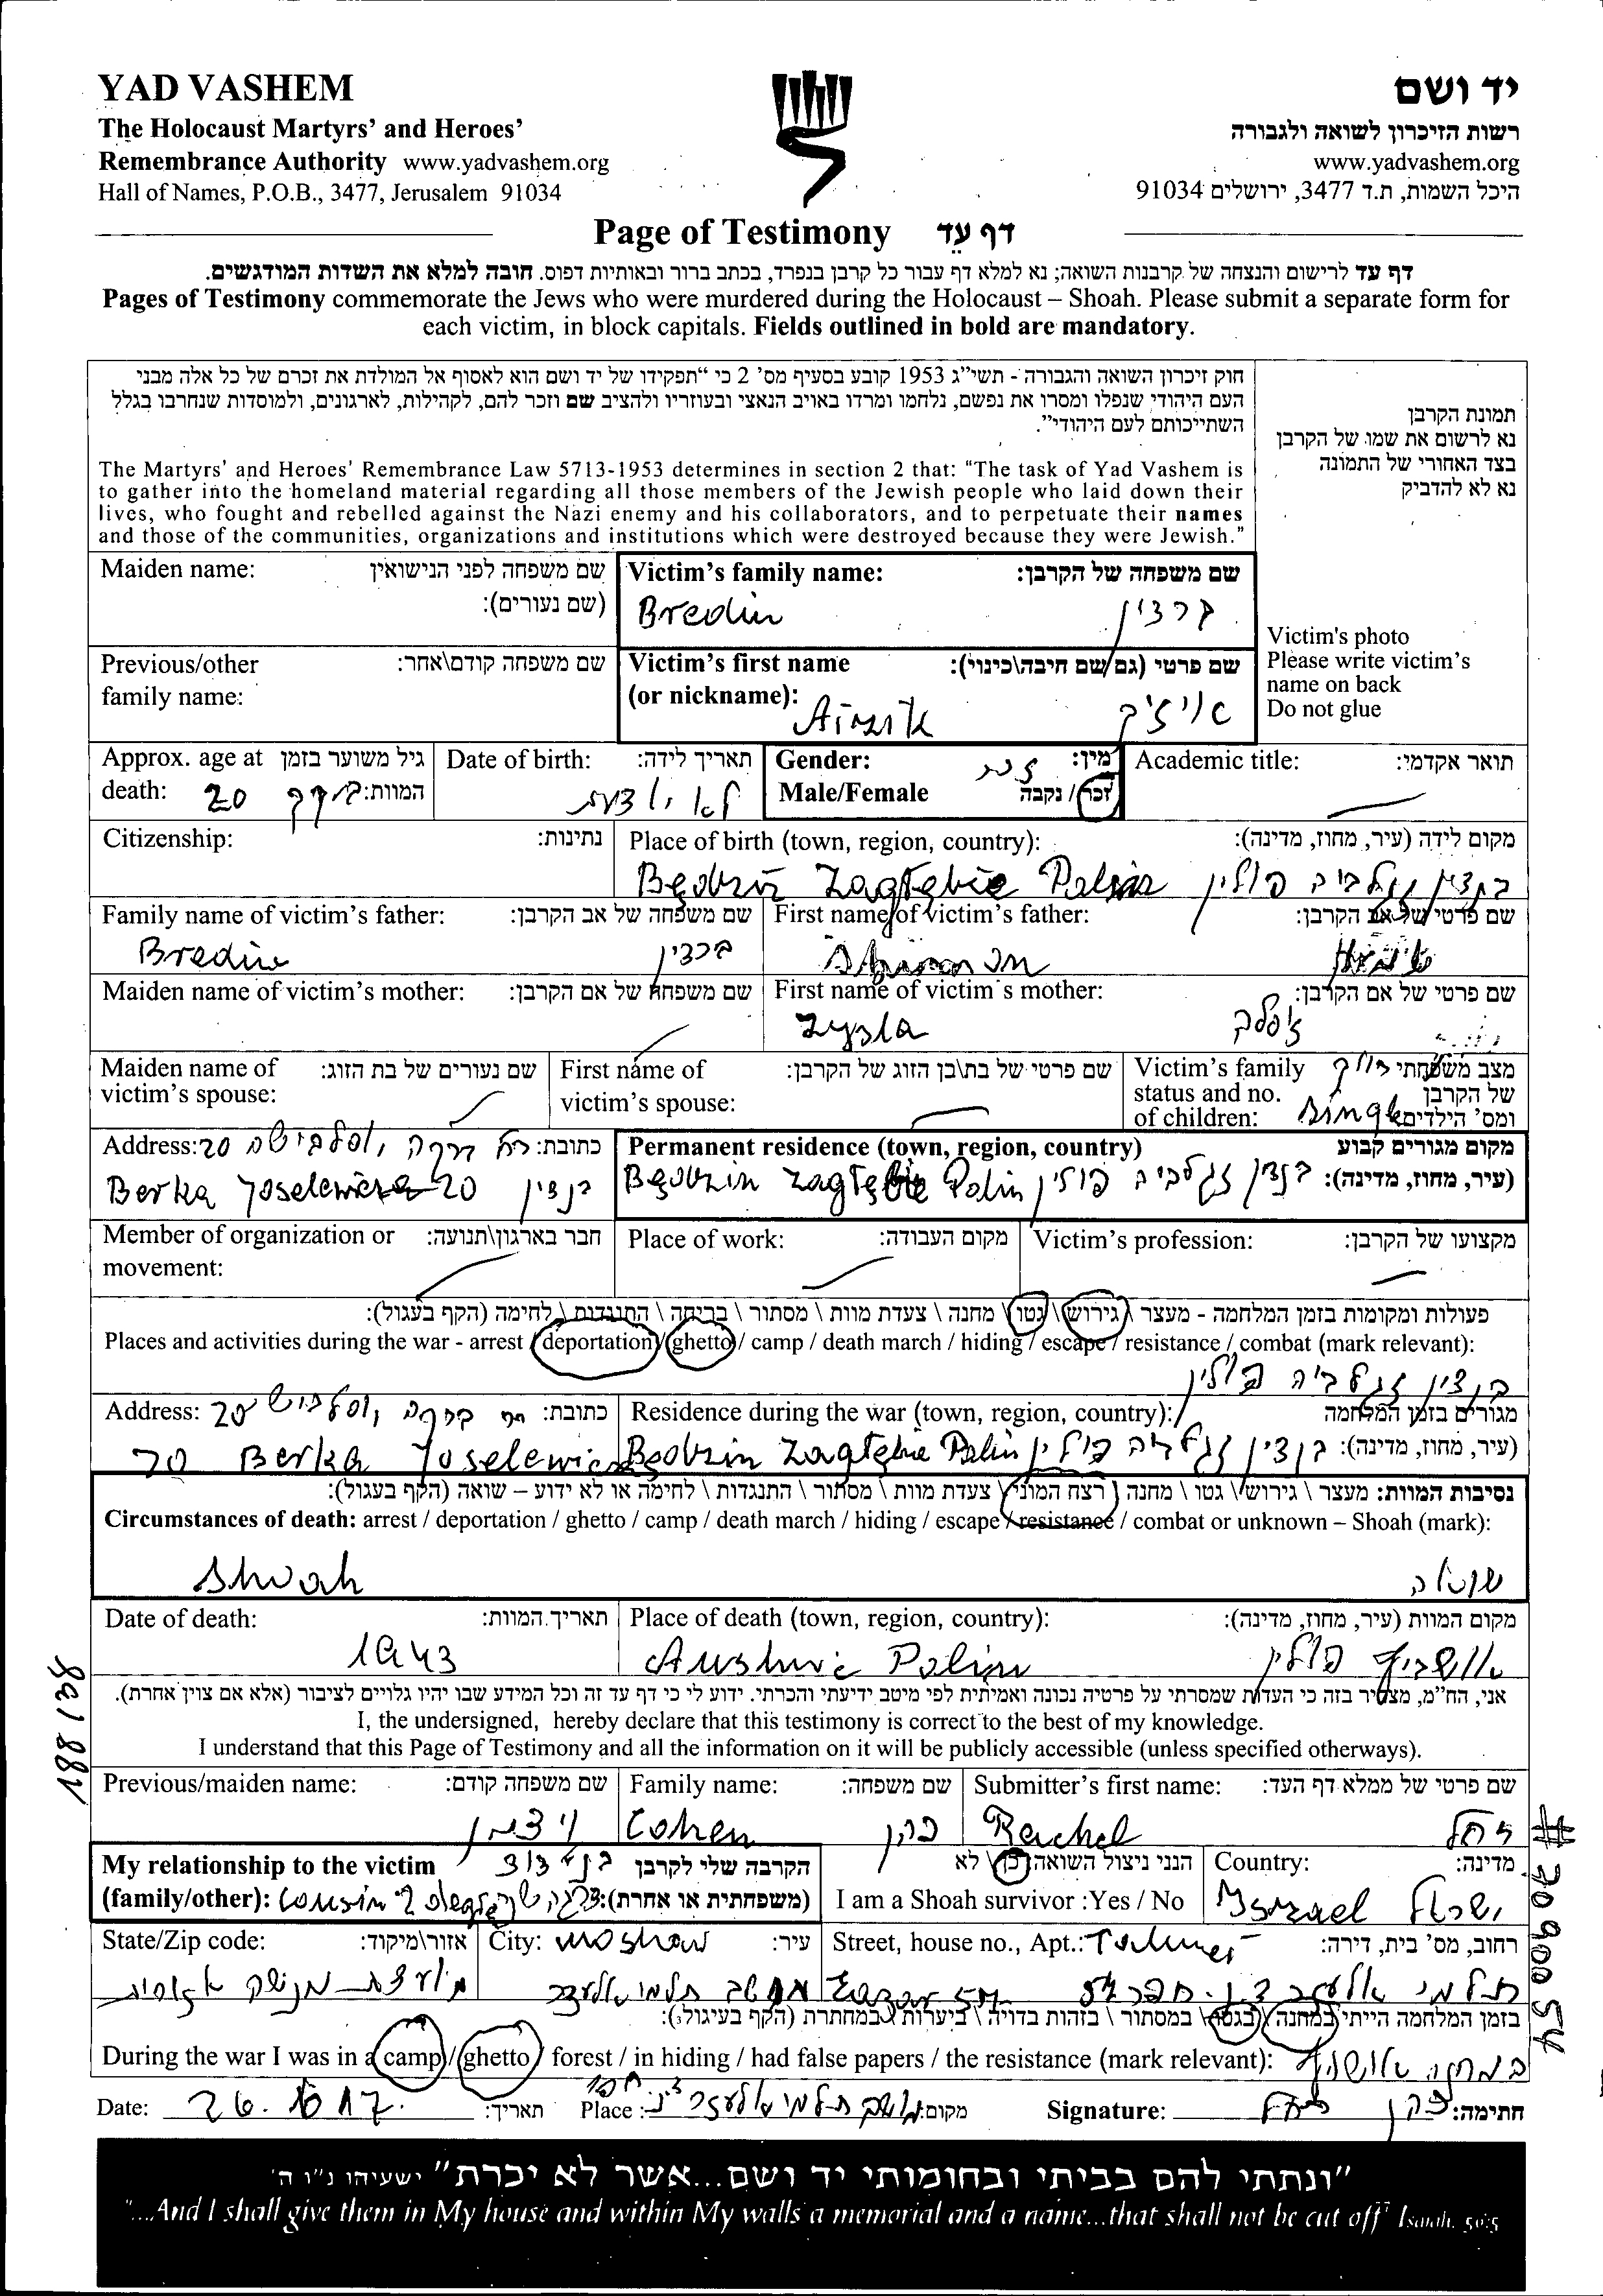 YAD VASHEM
The Holocaust Martyrs' and Heroes'
Remembrance Authority www.yadvashem.org
Hall of Names, P.O.B., 3477, Jerusalem 91034
יד ושם
רשות הזיכרון לשואה ולגבורה
www.yadvashem.org
היכל השמות, ת.ד 3477, ירושלים 91034
Page of Testimony דף עֵד
דף עד לרישום והנצחה של קרבנות השואה; נא למלא דף עבור כל קרבן בנפרד, בכתב ברור ובאותיות דפוס. חובה למלא את השדות המודגשים.
Pages of Testimony commemorate the Jews who were murdered during the Holocaust – Shoah. Please submit a separate form for
each victim, in block capitals. Fields outlined in bold are mandatory.
חוק זיכרון השואה והגבורה - תשי"ג 1953 קובע בסעיף מס' 2 כי "תפקידו של יד ושם הוא לאסוף אל המולדת את זכרם של כל אלה מבני
העם היהודי שנפלו ומסרו את נפשם, נלחמו ומרדו באויב הנאצי ובעוזריו ולהציב שם וזכר להם, לקהילות, לארגונים, ולמוסדות שנחרבו בגלל
השתייכותם לעם היהודי".
The Martyrs' and Heroes' Remembrance Law 5713-1953 determines in section 2 that: "The task of Yad Vashem is
to gather into the homeland material regarding all those members of the Jewish people who laid down their
lives, who fought and rebelled against the Nazi enemy and his collaborators, and to perpetuate their names
and those of the communities, organizations and institutions which were destroyed because they were Jewish."
תמונת הקרבן
נא לרשום את שמו של הקרבן
בצד האחורי של התמונה
נא לא להדביק
Victim's photo
Please write victim's
name on back
Do not glue
Maiden name: שם משפחה לפני הנישואין
(שם נעורים):
Victim's family name: שם משפחה של הקרבן:
Bredin ברדין
Previous/other שם משפחה קודם\אחר:
family name:
Victim's first name שם פרטי (גם שם חיבה\כינוי):
(or nickname):
אייזיק
Approx. age at גיל משוער בזמן
death: 20 המוות:
Date of birth: תאריך לידה:
לא יודעת
Gender: מין: זכר
Male/Female זכר / נקבה
Academic title: תואר אקדמי:
Citizenship: נתינות:
Place of birth (town, region, country): מקום לידה (עיר, מחוז, מדינה):
Będzin Zagłębie Polin בנדין זגלביה פולין
Family name of victim's father: שם משפחה של אב הקרבן:
Bredin ברדין
First name of victim's father: שם פרטי של אב הקרבן:
Maiden name of victim's mother: שם משפחה של אם הקרבן:
First name of victim's mother: שם פרטי של אם הקרבן:
Zysla
Maiden name of שם נעורים של בת הזוג:
victim's spouse:
First name of שם פרטי של בת\בן הזוג של הקרבן:
victim's spouse:
Victim's family מצב משפחתי רווק
status and no. של הקרבן
of children: single ומס' הילדים:
Address: כתובת: רח ברקה יוסלביצה 20
Berka Joselewicza 20 בנדין
Permanent residence (town, region, country) מקום מגורים קבוע
(עיר, מחוז, מדינה): בנדין זגלביה פולין Będzin Zagłębie Polin
Member of organization or חבר בארגון\תנועה:
movement:
Place of work: מקום העבודה:
Victim's profession: מקצועו של הקרבן:
פעולות ומקומות בזמן המלחמה - מעצר \ גירוש \ גטו \ מחנה \ צעדת מוות \ מסתור \ בריחה \ התנגדות \ לחימה (הקף בעגול):
Places and activities during the war - arrest / deportation / ghetto / camp / death march / hiding / escape / resistance / combat (mark relevant):
בנדין זגלביה פולין
Address: 20 כתובת:
20 Berka Joselewicza
Residence during the war (town, region, country): מגורים בזמן המלחמה
(עיר, מחוז, מדינה): בנדין זגלביה פולין Będzin Zagłębie Polin
נסיבות המוות: מעצר \ גירוש \ גטו \ מחנה \ רצח המוני \ צעדת מוות \ מסתור \ התנגדות \ לחימה או לא ידוע – שואה (הקף בעגול):
Circumstances of death: arrest / deportation / ghetto / camp / death march / hiding / escape / resistance / combat or unknown – Shoah (mark):
Shoah שואה
Date of death: תאריך המוות:
1943
Place of death (town, region, country): מקום המוות (עיר, מחוז, מדינה):
Aushwic Polin אושביץ פולין
אני, החו"מ, מצהיר בזה כי העדות שמסרתי על פרטיה נכונה ואמיתית לפי מיטב ידיעתי והכרתי. ידוע לי כי דף עד זה וכל המידע שבו יהיו גלויים לציבור (אלא אם צוין אחרת).
I, the undersigned, hereby declare that this testimony is correct to the best of my knowledge.
I understand that this Page of Testimony and all the information on it will be publicly accessible (unless specified otherways).
Previous/maiden name: שם משפחה קודם:
Family name: שם משפחה:
Cohen כהן
Submitter's first name: שם פרטי של ממלא דף העד:
Rachel רחל
My relationship to the victim הקרבה שלי לקרבן בן דוד
(family/other): (משפחתית או אחרת): cousin
הנני ניצול השואה: כן \ לא
I am a Shoah survivor :Yes / No
Country: מדינה:
Israel ישראל
State/Zip code: אזור\מיקוד:
City: Moshav עיר:
מושב תלמי אלעזר
Street, house no., Apt.: רחוב, מס' בית, דירה:
תלמי אלעזר
בזמן המלחמה הייתי במחנה \ בגטו \ במסתור \ בזהות בדויה \ ביערות \ במחתרת (הקף בעיגול):
During the war I was in a camp / ghetto / forest / in hiding / had false papers / the resistance (mark relevant): במחנה אושויץ
Date: תאריך: Place: מושב תלמי אלעזר מקום: Signature: כהן רחל חתימה:
"ונתתי להם בביתי ובחומותי יד ושם...אשר לא יכרת" ישעיהו נ"ו ה'
"...And I shall give them in My house and within My walls a memorial and a name...that shall not be cut off" Isaiah. 56:5
188138
#7090054